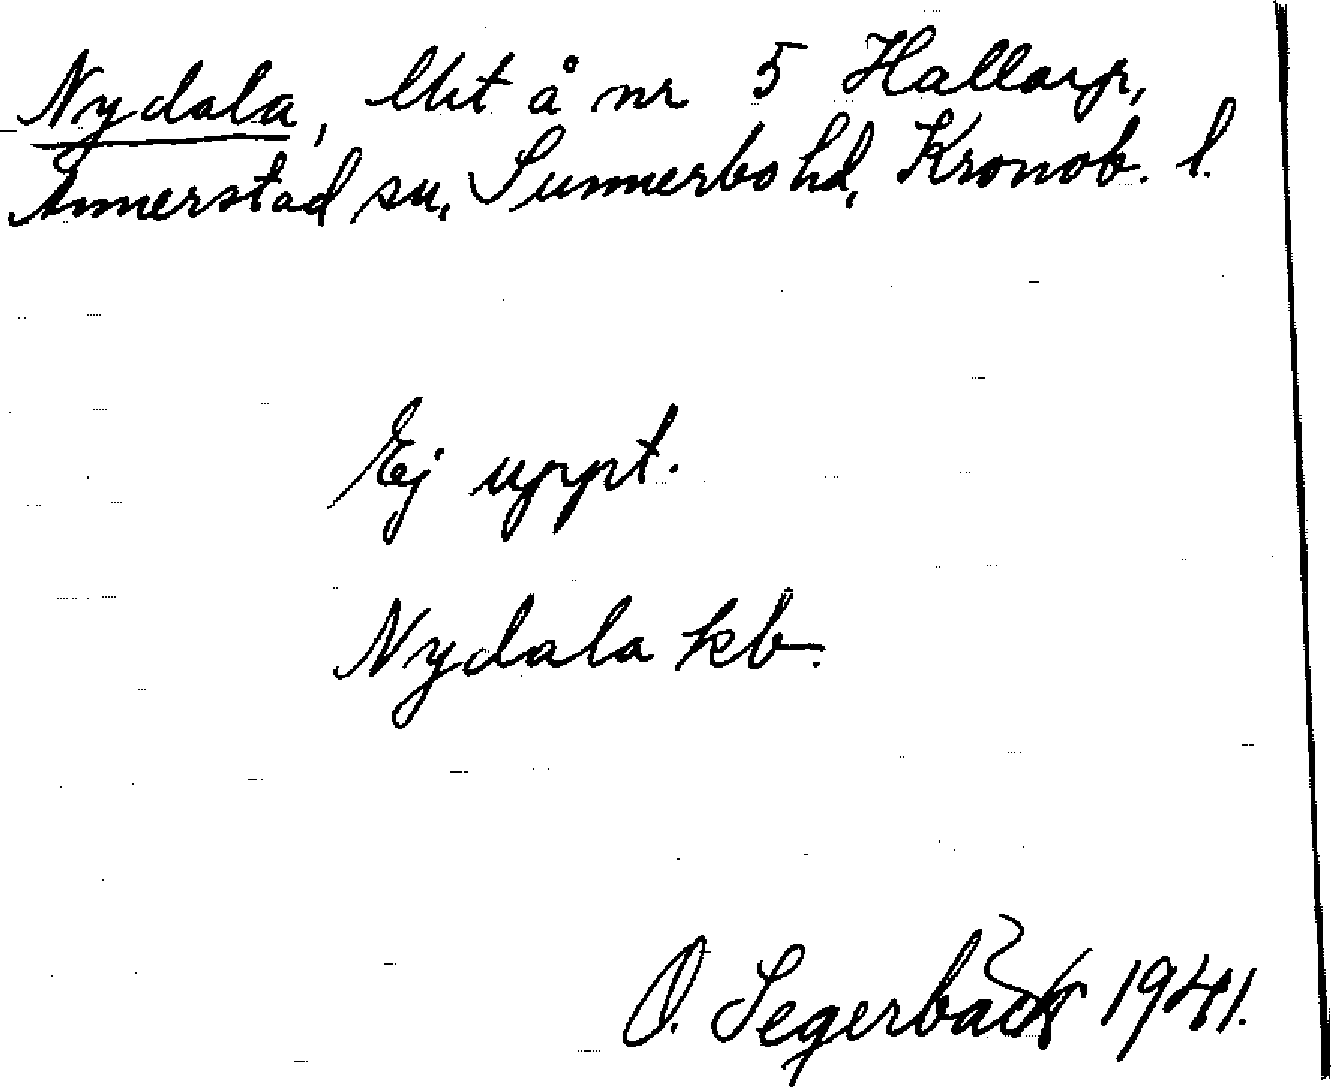 Nydala, lht å nr 5 Hallarp,
Annerstad sn, Sunnerbo hd, Kronob. l.
Ej uppt.
Nydala kb.
O. Segerbäck 1941.